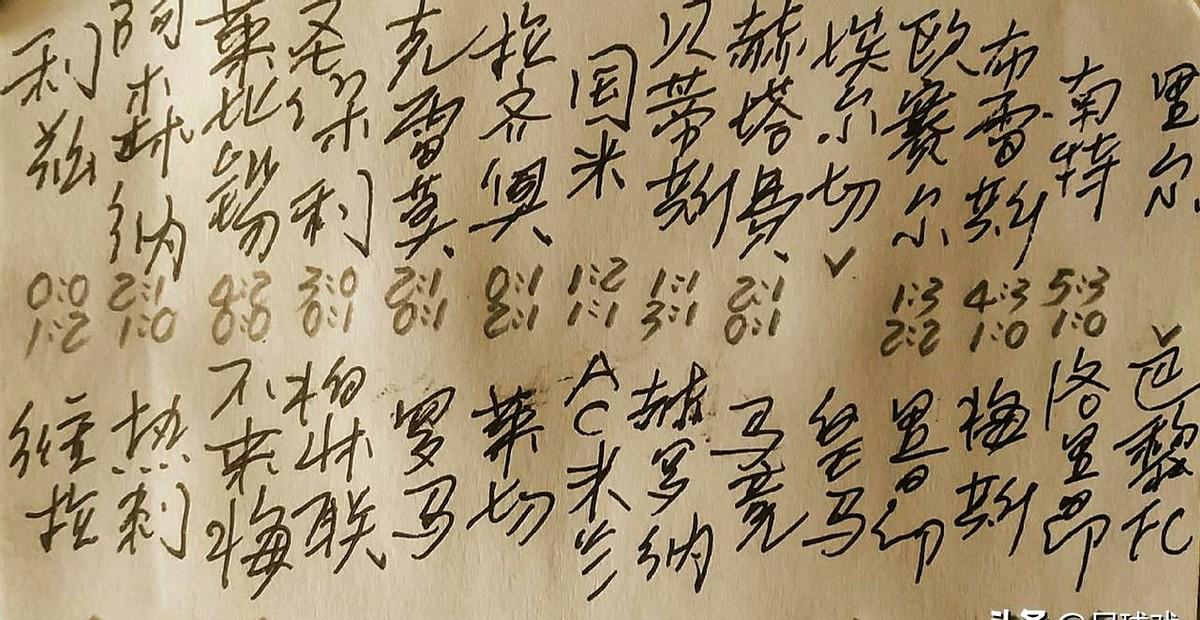 利兹
0:0
1:2
维拉
阿森纳
2:1
1:0
热刺
莱比锡
4:2
0:0
不来梅
圣保利
3:0
0:1
柏林联
克雷莫
2:1
0:1
罗马
拉齐奥
0:1
2:1
莱切
国米
1:2
1:1
AC米兰
贝蒂斯
1:1
3:1
赫罗纳
赫塔费
2:1
0:1
马竞
埃尔切
✓
皇马
欧赛尔
1:3
2:2
里昂
布雷斯
4:3
1:0
梅斯
南特
5:3
1:0
洛里昂
里尔
✓
巴黎FC
头条